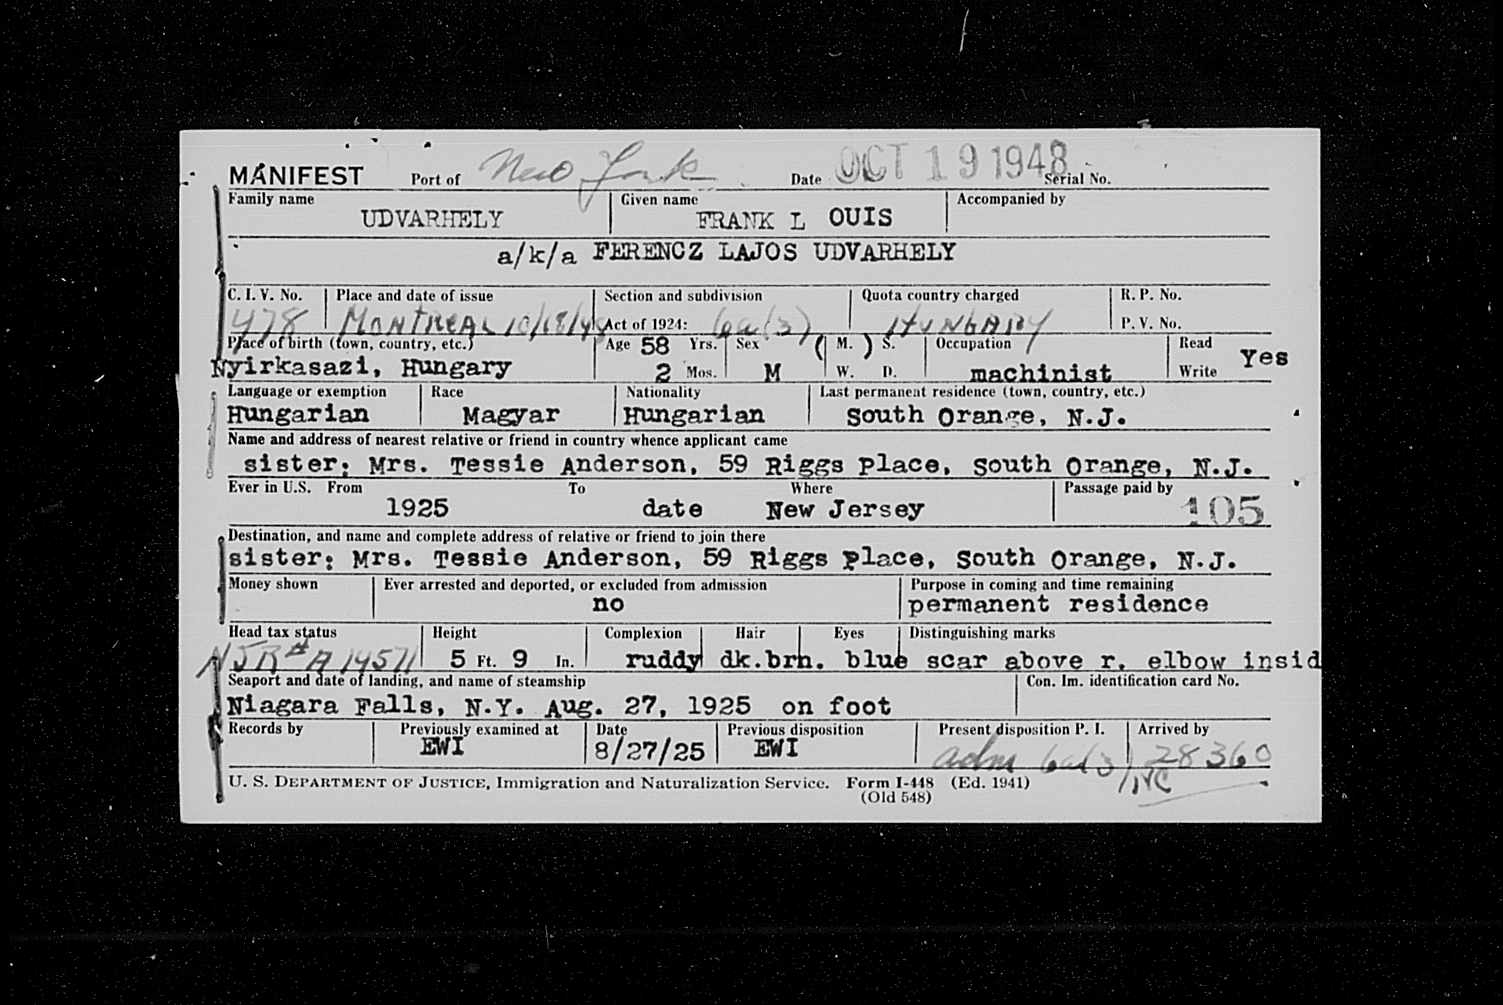 MANIFEST Port of New York Date OCT 19 1948 Serial No.
Family name Given name Accompanied by
UDVARHELY FRANK L OUIS
a/k/a FERENCZ LAJOS UDVARHELY
C. I. V. No. Place and date of issue Section and subdivision Quota country charged R. P. No.
478 MONTREAL 10/18/48 Act of 1924: 6a(3) HUNGARY P. V. No.
Place of birth (town, country, etc.) Age 58 Yrs. Sex ( M. ) S. Occupation Read Yes
Nyirkasazi, Hungary 2 Mos. M W. D. machinist Write
Language or exemption Race Nationality Last permanent residence (town, country, etc.)
Hungarian Magyar Hungarian South Orange, N.J.
Name and address of nearest relative or friend in country whence applicant came
sister: Mrs. Tessie Anderson, 59 Riggs Place, South Orange, N.J.
Ever in U.S. From To Where Passage paid by
1925 date New Jersey 105
Destination, and name and complete address of relative or friend to join there
sister: Mrs. Tessie Anderson, 59 Riggs Place, South Orange, N.J.
Money shown Ever arrested and deported, or excluded from admission Purpose in coming and time remaining
no permanent residence
Head tax status Height Complexion Hair Eyes Distinguishing marks
5 Ft. 9 In. ruddy dk.brn. blue scar above r. elbow insid
Seaport and date of landing, and name of steamship Con. Im. identification card No.
Niagara Falls, N.Y. Aug. 27, 1925 on foot
Records by Previously examined at Date Previous disposition Present disposition P. I. Arrived by
EWI 8/27/25 EWI adm 6a(3) 28360
U. S. DEPARTMENT OF JUSTICE, Immigration and Naturalization Service. Form I-448 (Ed. 1941)
(Old 548)